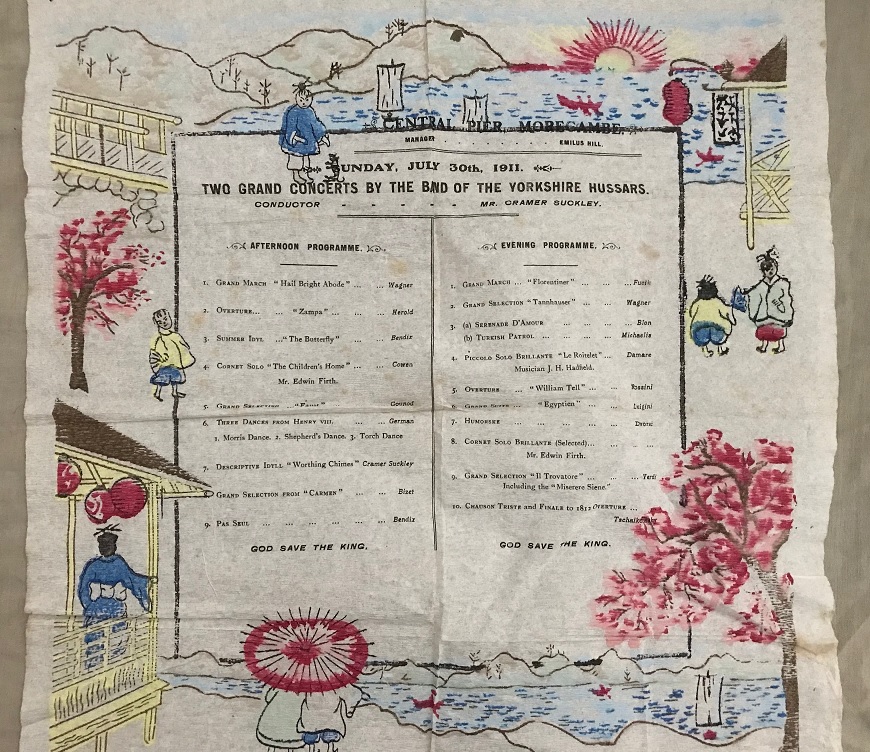 CENTRAL PIER, MORECAMBE.
MANAGER . . . . . . . EMILUS HILL.
SUNDAY, JULY 30th, 1911.
TWO GRAND CONCERTS BY THE BAND OF THE YORKSHIRE HUSSARS.
CONDUCTOR - - - - - MR. CRAMER SUCKLEY.
AFTERNOON PROGRAMME.
1. GRAND MARCH "Hail Bright Abode" ... ... Wagner
2. OVERTURE... ... "Zampa" ... ... Herold
3. SUMMER IDYL ..."The Butterfly" ... Bendix
4. CORNET SOLO "The Children's Home" ... Cowen
Mr. Edwin Firth.
5. GRAND SELECTION ... "Faust" ... Gounod
6. THREE DANCES FROM HENRY VIII. ... ... German
1. Morris Dance. 2. Shepherd's Dance. 3. Torch Dance
7. DESCRIPTIVE IDYLL "Worthing Chimes" Cramer Suckley
8 GRAND SELECTION FROM "CARMEN" ... ... Bizet
9. PAS SEUL ... ... ... ... ... Bendix
GOD SAVE THE KING.
EVENING PROGRAMME.
1. GRAND MARCH ... "Florentiner" ... ... Fucik
2. GRAND SELECTION "Tannhauser" ... ... Wagner
3. (a) SERENADE D'AMOUR ... ... ... Blon
(b) TURKISH PATROL ... ... ... Michaelis
4. PICCOLO SOLO BRILLANTE "Le Roitelet"... Damare
Musician J. H. Hadfield.
5. OVERTURE ... "William Tell" ... ... Rossini
6. GRAND SUITE ... "Egyptien" ... ... Luigini
7. HUMORSKE ... ... ... ... Dvorak
8. CORNET SOLO BRILLANTE (Selected)... ...
Mr. Edwin Firth.
9. GRAND SELECTION "Il Trovatore" ... ... Verdi
Including the "Miserere Siene."
10. CHAUSON TRISTE AND FINALE TO 1812 OVERTURE ...
Tschaikowsky
GOD SAVE THE KING.